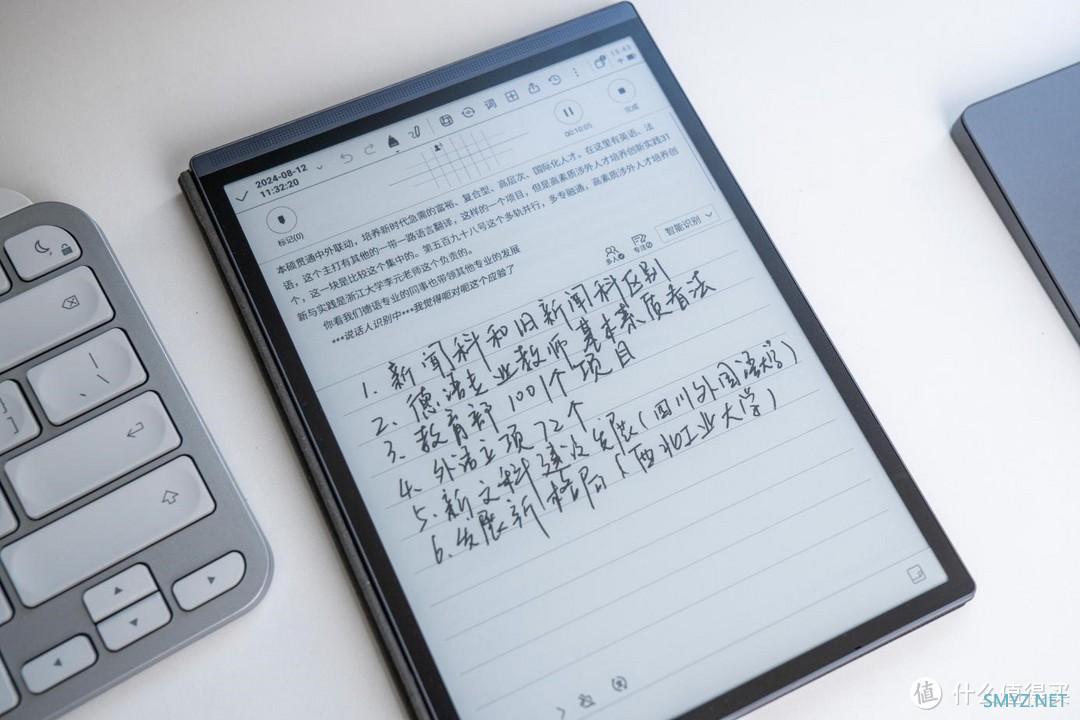 15:43
2024-08-12
11:32:20
词
00:10:05
完成
标记(0)
本硕贯通中外联动，培养新时代急需的富裕、复合型、高层次、国际化人才。在这里有英语、法
语，这个主打有其他的一带一路语言翻译，这样的一个项目，但是高素质涉外人才培养创新实践31
个，这一块是比较这个集中的。第五百九十八号这个多轨并行，多专融通，高素质涉外人才培养创
新与实践是浙江大学李元老师这个负责的。
你看我们德语专业的同事也带领其他专业的发展
***说话人识别中***我觉得呃对呃这个应验了
多人
专注
智能识别
1. 新闻科和旧新闻科区别
2. 德语专业教师基本素质看法
3. 教育部1001个项目
4. 外语立项72个
5. 新文科建设发展(四川外国语大学)
6. 发展新格局(西北工业大学)
值 什么值得买
SMYZ.NET